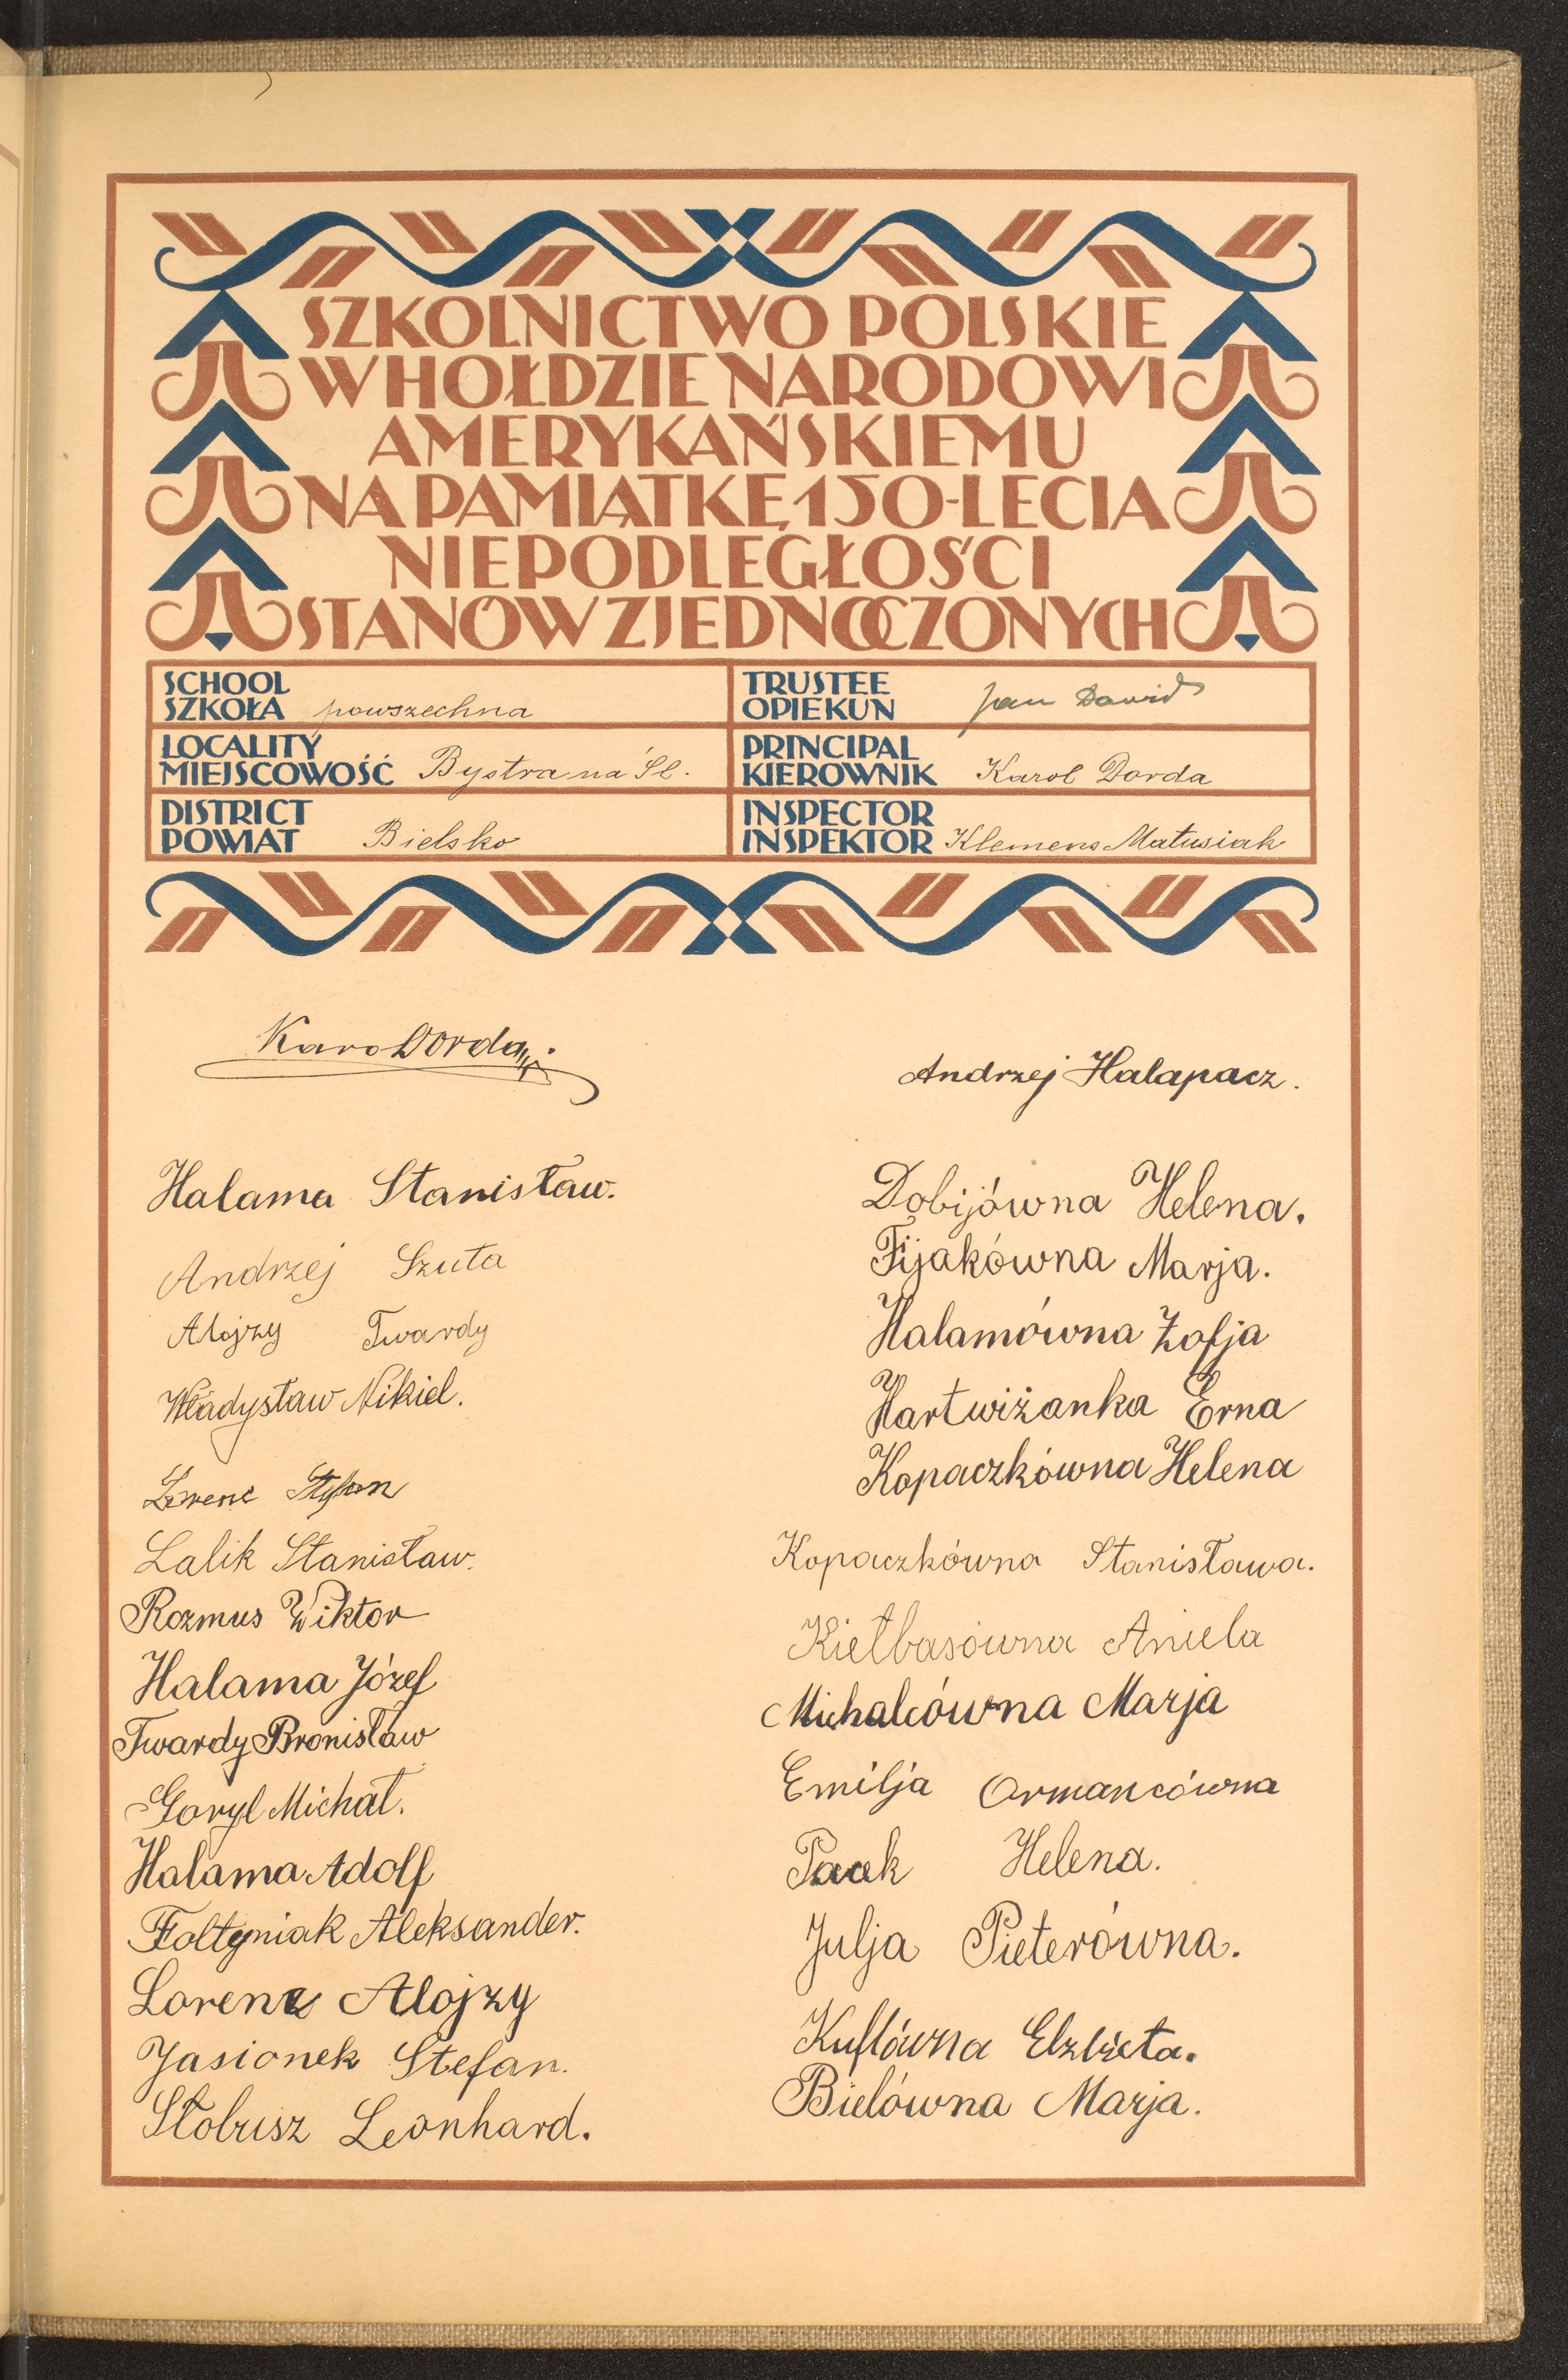 SZKOLNICTWO POLSKIE
W HOŁDZIE NARODOWI
AMERYKAŃSKIEMU
NA PAMIĄTKĘ 150-LECIA
NIEPODLEGŁOŚCI
STANÓW ZJEDNOCZONYCH
SCHOOL
SZKOŁA powszechna
TRUSTEE
OPIEKUN Jan Dawid
LOCALITY
MIEJSCOWOŚĆ Bystra na Śl.
PRINCIPAL
KIEROWNIK Karol Dorda
DISTRICT
POWIAT Bielsko
INSPECTOR
INSPEKTOR Klemens Matusiak
Karol Dorda
Andrzej Halapacz.
Halama Stanisław.
Andrzej Szuta
Alojzy Twardy
Władysław Nikiel.
Lorenc
Lalik Stanisław.
Rozmus Wiktor
Halama Józef
Twardy Bronisław
Goryl Michał.
Halama Adolf
Foltyniak Aleksander.
Lorenz Alojzy
Jasionek Stefan.
Stobrisz Leonhard.
Dobijówna Helena.
Fijakówna Marja.
Halamówna Zofja
Hartwiżanka Erna
Kopaczkówna Helena
Kopaczkówna Stanisława.
Kiełbasówna Aniela
Michalcówna Marja
Emilja Ormancówna
Helena.
Julja Pieterówna.
Kuflówna Elżbieta.
Bielówna Marja.